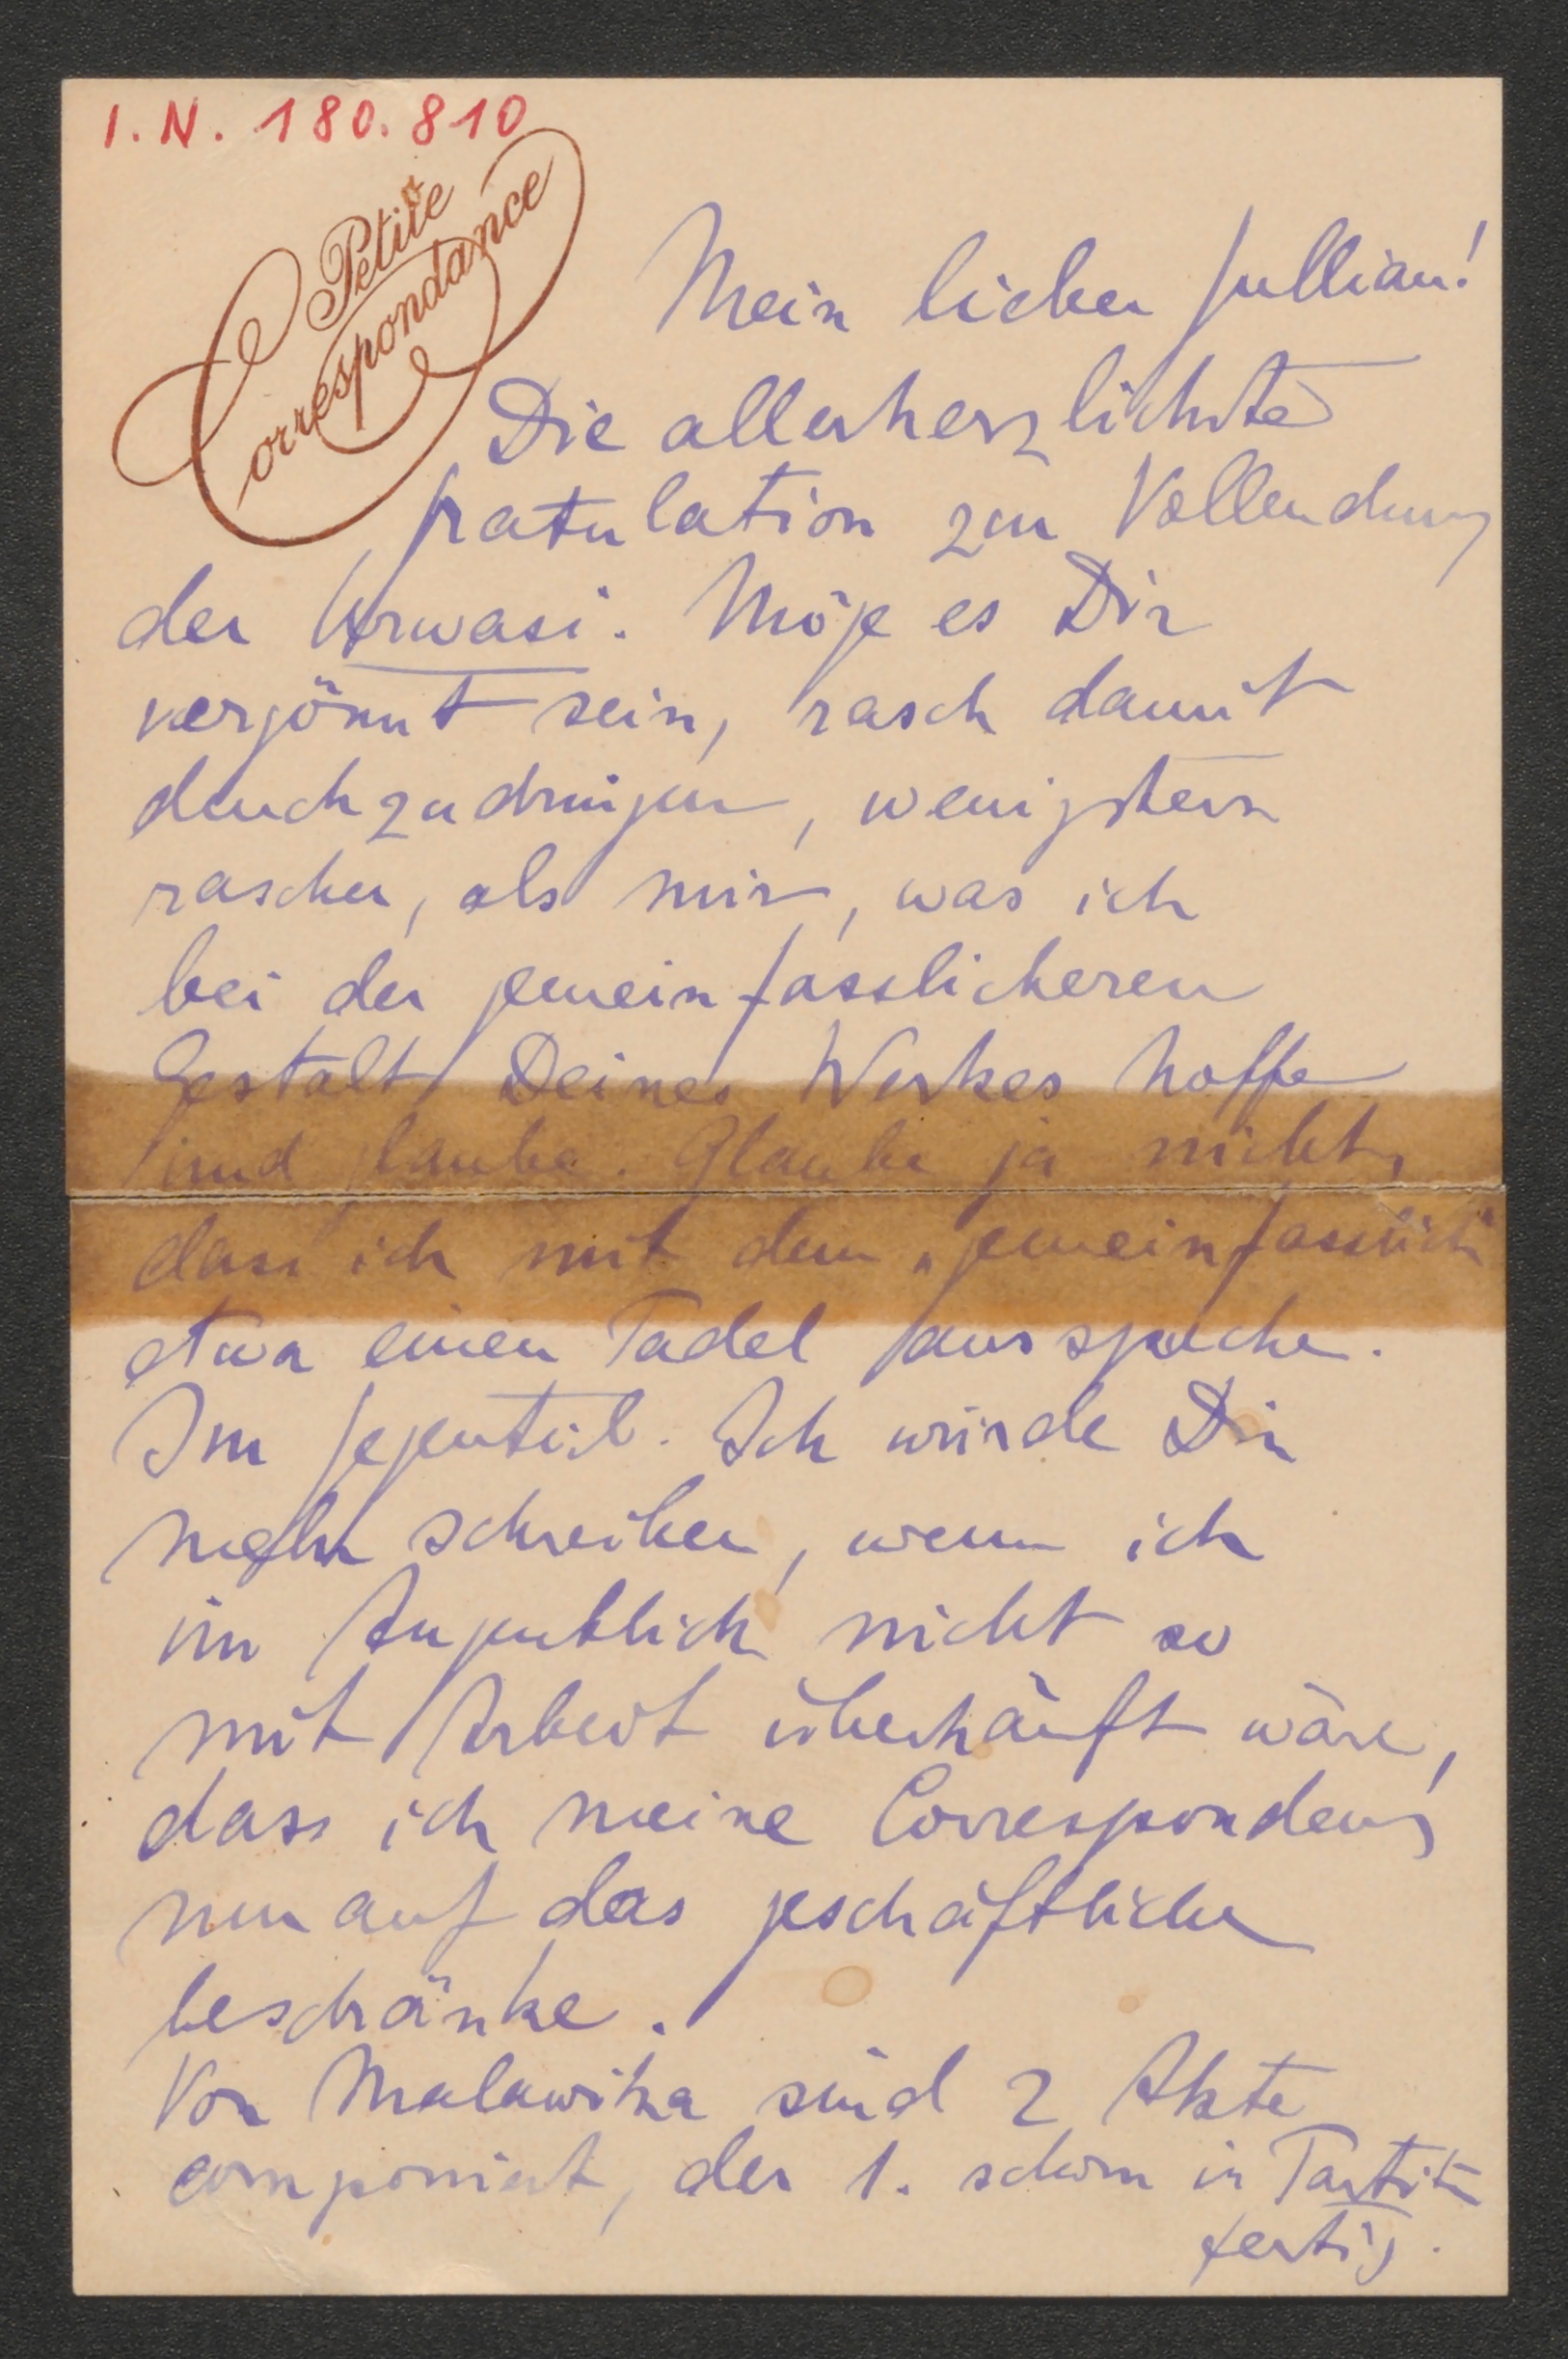 I.N. 180.810
Petite
Correspondance
Mein lieber Jullian!
Die allerherzlichste
Gratulation zur Vollendung
der Urwasi. Möge es Dir
vergönnt sein, rasch damit
durchzudringen, wenigstens
rascher, als mir, was ich
bei der gemeinfasslicheren
Gestalt Deines Werkes hoffe
und glaube. Glaube ja nicht,
dass ich mit dem „gemeinfasslich"
etwa einen Tadel ausspreche.
Im Gegenteil. Ich würde Dir
mehr schreiben, wenn ich
im Augenblick nicht so
mit Arbeit überhäuft wäre,
dass ich meine Correspondenz
nur auf das geschäftliche
beschränke.
Von Malawika sind 2 Akte
componiert, der 1. schon in Partitur
fertig.